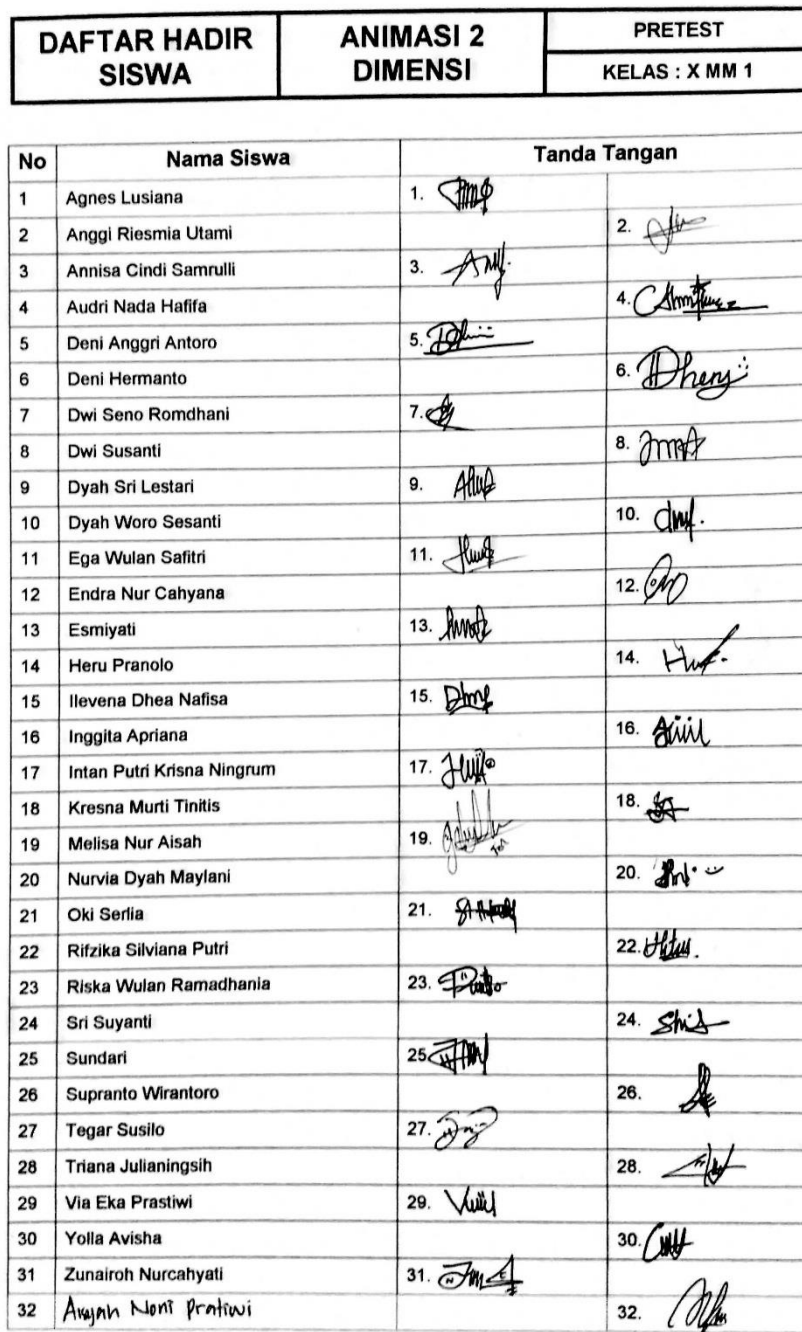 DAFTAR HADIR SISWA
ANIMASI 2 DIMENSI
PRETEST
KELAS : X MM 1
No Nama Siswa Tanda Tangan
1 Agnes Lusiana 1.
2 Anggi Riesmia Utami 2.
3 Annisa Cindi Samrulli 3.
4 Audri Nada Hafifa 4.
5 Deni Anggri Antoro 5.
6 Deni Hermanto 6.
7 Dwi Seno Romdhani 7.
8 Dwi Susanti 8.
9 Dyah Sri Lestari 9.
10 Dyah Woro Sesanti 10.
11 Ega Wulan Safitri 11.
12 Endra Nur Cahyana 12.
13 Esmiyati 13.
14 Heru Pranolo 14.
15 Ilevena Dhea Nafisa 15.
16 Inggita Apriana 16.
17 Intan Putri Krisna Ningrum 17.
18 Kresna Murti Tinitis 18.
19 Melisa Nur Aisah 19.
20 Nurvia Dyah Maylani 20.
21 Oki Serlia 21.
22 Rifzika Silviana Putri 22.
23 Riska Wulan Ramadhania 23.
24 Sri Suyanti 24.
25 Sundari 25
26 Supranto Wirantoro 26.
27 Tegar Susilo 27.
28 Triana Julianingsih 28.
29 Via Eka Prastiwi 29.
30 Yolla Avisha 30.
31 Zunairoh Nurcahyati 31.
32 Noni Pratiwi 32.